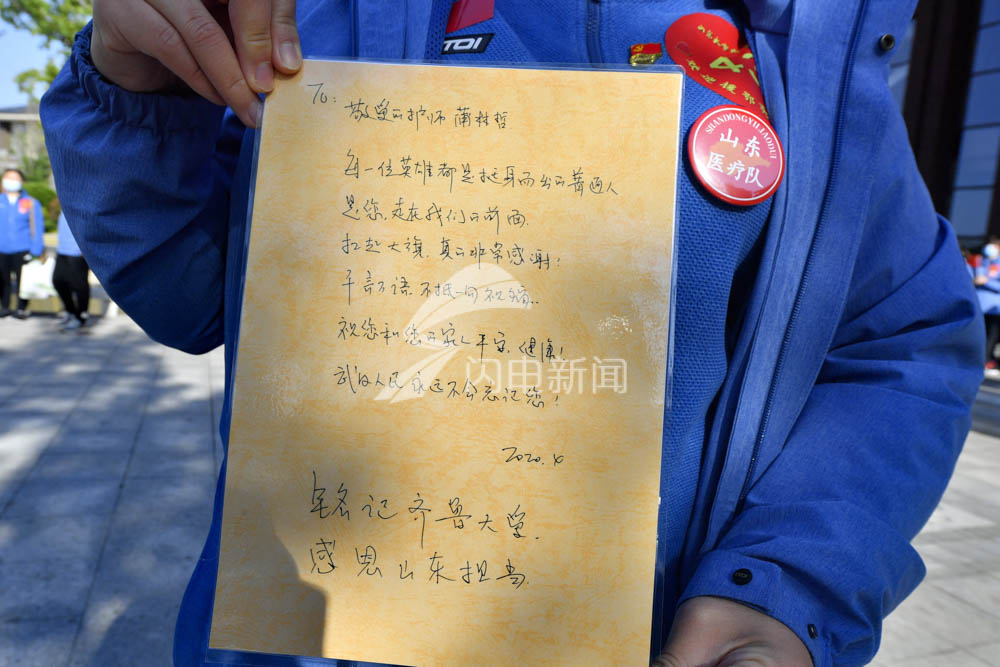 TOI
SHANDONGYILIAODUI
山东
医疗队
To:
敬爱的护师 蒲
每一位英雄都是挺身而出的普通人
是您,走在我们的前面,
扛起大旗,真的非常感谢!
千言万语,不抵一句祝福..
祝您和您的家人平安,健康!
武汉人民永远不会忘记您!
2020.4
铭记齐鲁大学,
感恩山东担当.
闪电新闻